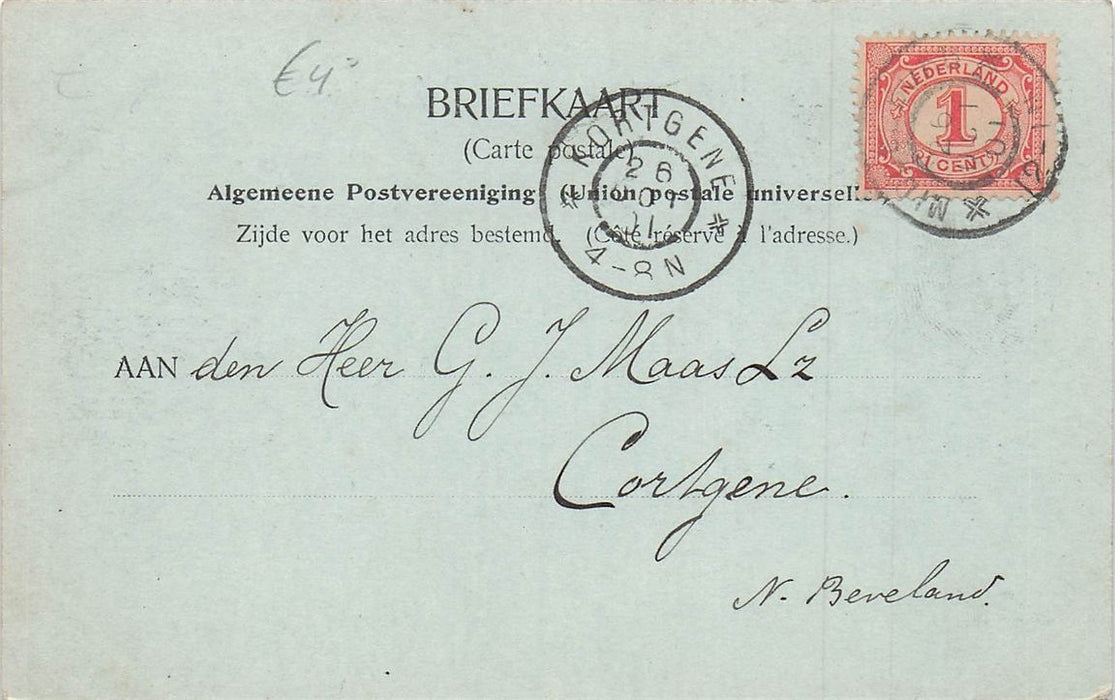 €4,-
BRIEFKAART
(Carte postale)
Algemeene Postvereeniging (Union postale universelle)
Zijde voor het adres bestemd. (Côté réservé à l'adresse.)
KORTGENE
26
4-8N
NEDERLAND
1
1 CENT
12-1
AAN den Heer G. J. Maas Lz
Cortgene.
N. Beveland.